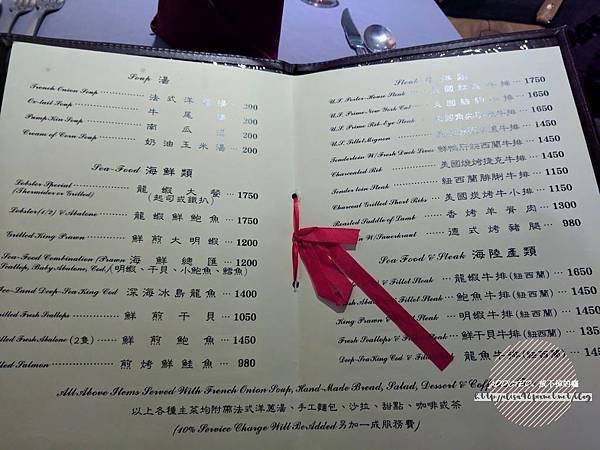 Soup 湯
French Onion Soup 法式洋蔥湯 200
Ox-tail Soup 牛尾 200
Pump Kin Soup 南瓜 200
Cream of Corn Soup 奶油玉米湯 200
Sea-Food 海鮮類
Lobster Special 龍蝦大餐 1750
(Thermidor or Grilled) (起司或鐵扒)
Lobster(1/2) & Abalone 龍蝦鮮鮑魚 1750
Grilled King Prawn 鮮煎大明蝦 1200
Sea-Food Combination (Prawn 海鮮總匯 1200
Scallop, Baby Abalone, Cod) (明蝦、干貝、小鮑魚、鱈魚)
Ice-Land Deep-Sea King Cod 深海冰島龍魚 1400
Grilled Fresh Scallops 鮮煎干貝 1050
Grilled Fresh Abalone (2隻) 鮮煎鮑魚 1450
Grilled Salmon 煎烤鮮鮭魚 980
Steak 牛排類
U.S. Porter-House Steak 美國紅屋牛排 1750
U.S. Prime New York Cut 美國紐約牛排 1650
U.S. Prime Rib-Eye Steak 牛排 1650
U.S. Fillet Mignon 牛排 1450
Tenderloin W/Fresh Duck Liver 鮮鴨肝紐西蘭牛排 1450
Charcoaled Rib 美國燒烤捷克牛排 1450
Tenderloin Steak 紐西蘭腓脷牛排 1150
Charcoal Grilled Short Ribs 美國炭烤牛小排 1150
Roasted Saddle of Lamb 香烤羊脊肉 1300
W/Sauerkraut 德式烤豬腿 980
Sea Food & Steak 海陸產類
& Fillet Steak 龍蝦牛排(紐西蘭) 1650
Abalone & Fillet Steak 鮑魚牛排(紐西蘭) 1450
King Prawn Steak 明蝦牛排(紐西蘭) 1450
Fresh Scallops & Steak 鮮干貝牛排(紐西蘭)
Deep-Sea King Cod & Fillet 龍魚牛排(紐西蘭)
All Above Items Served With French Onion Soup, Hand-Made Bread, Salad, Dessert & Coffee
以上各種主菜均附帶法式洋蔥湯、手工麵包、沙拉、甜點、咖啡或茶
(10% Service Charge Will Be Added 另加一成服務費)